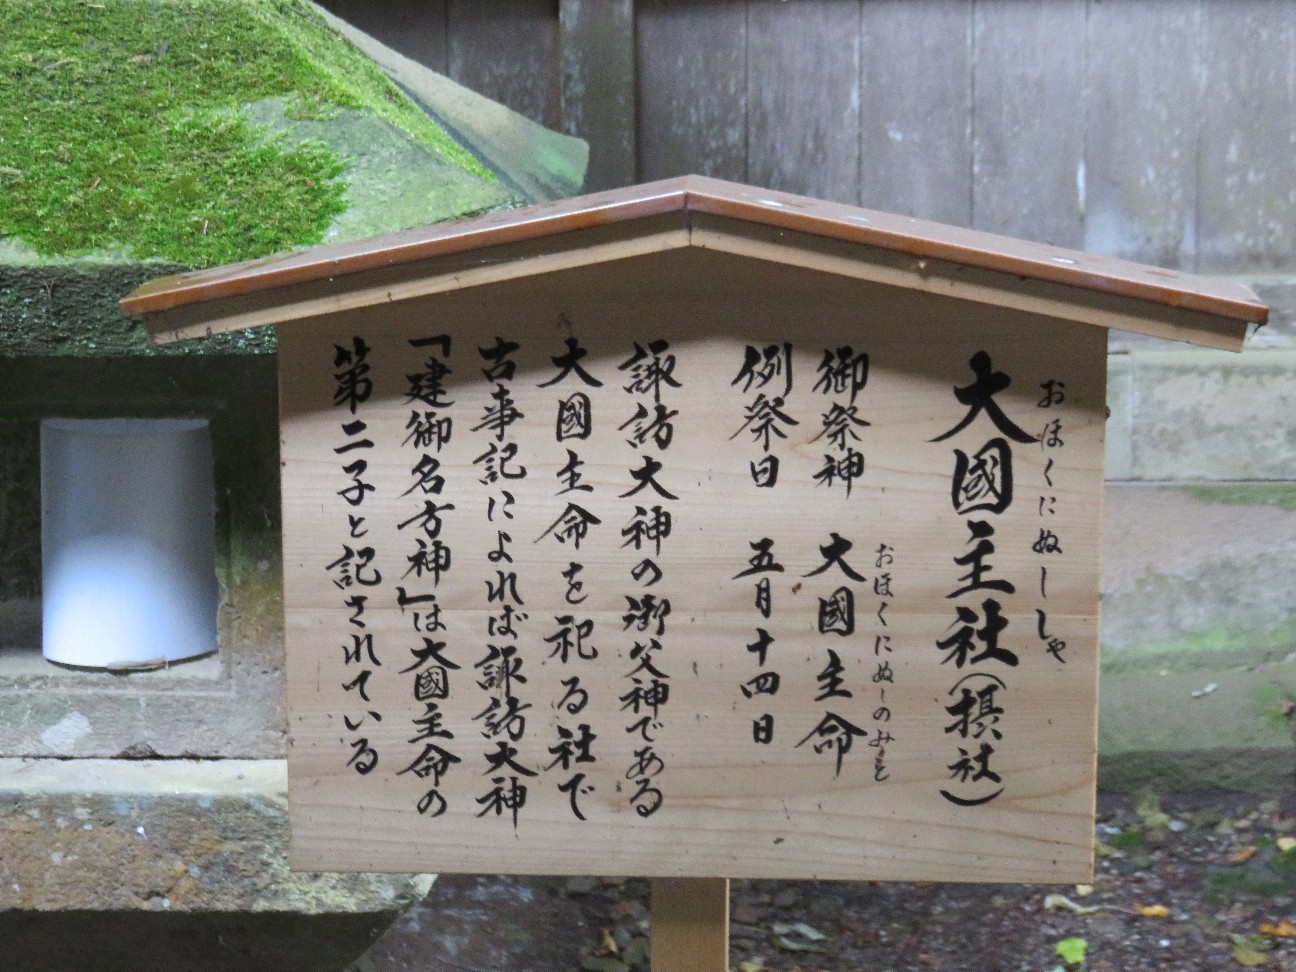 大國主社(摂社)
おほくにぬししゃ
御祭神 大國主命
おほくにぬしのみこと
例祭日 五月十四日
諏訪大神の御父神である
大國主命を祀る社で
古事記によれば諏訪大神
「建御名方神」は大國主命の
第二子と記されている